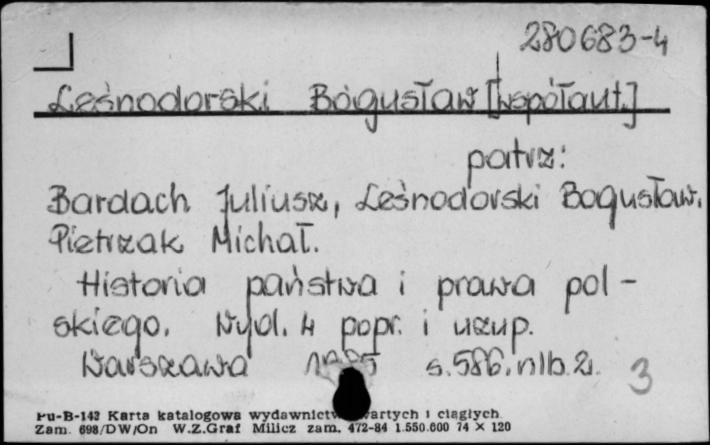 280683-4
Leśnodorski Bogusław [współaut.]
patrz:
Bardach Juliusz, Leśnodorski Bogusław,
Pietrzak Michał.
Historia państwa i prawa pol-
skiego. Wyd. 4 popr. i uzup.
Warszawa s. 586, nlb. 2.
3
Pu-B-143 Karta katalogowa wydawnictw zwartych i ciągłych
Zam. 698/DW/On W.Z.Graf Milicz zam. 472-84 1.550.600 74 × 120